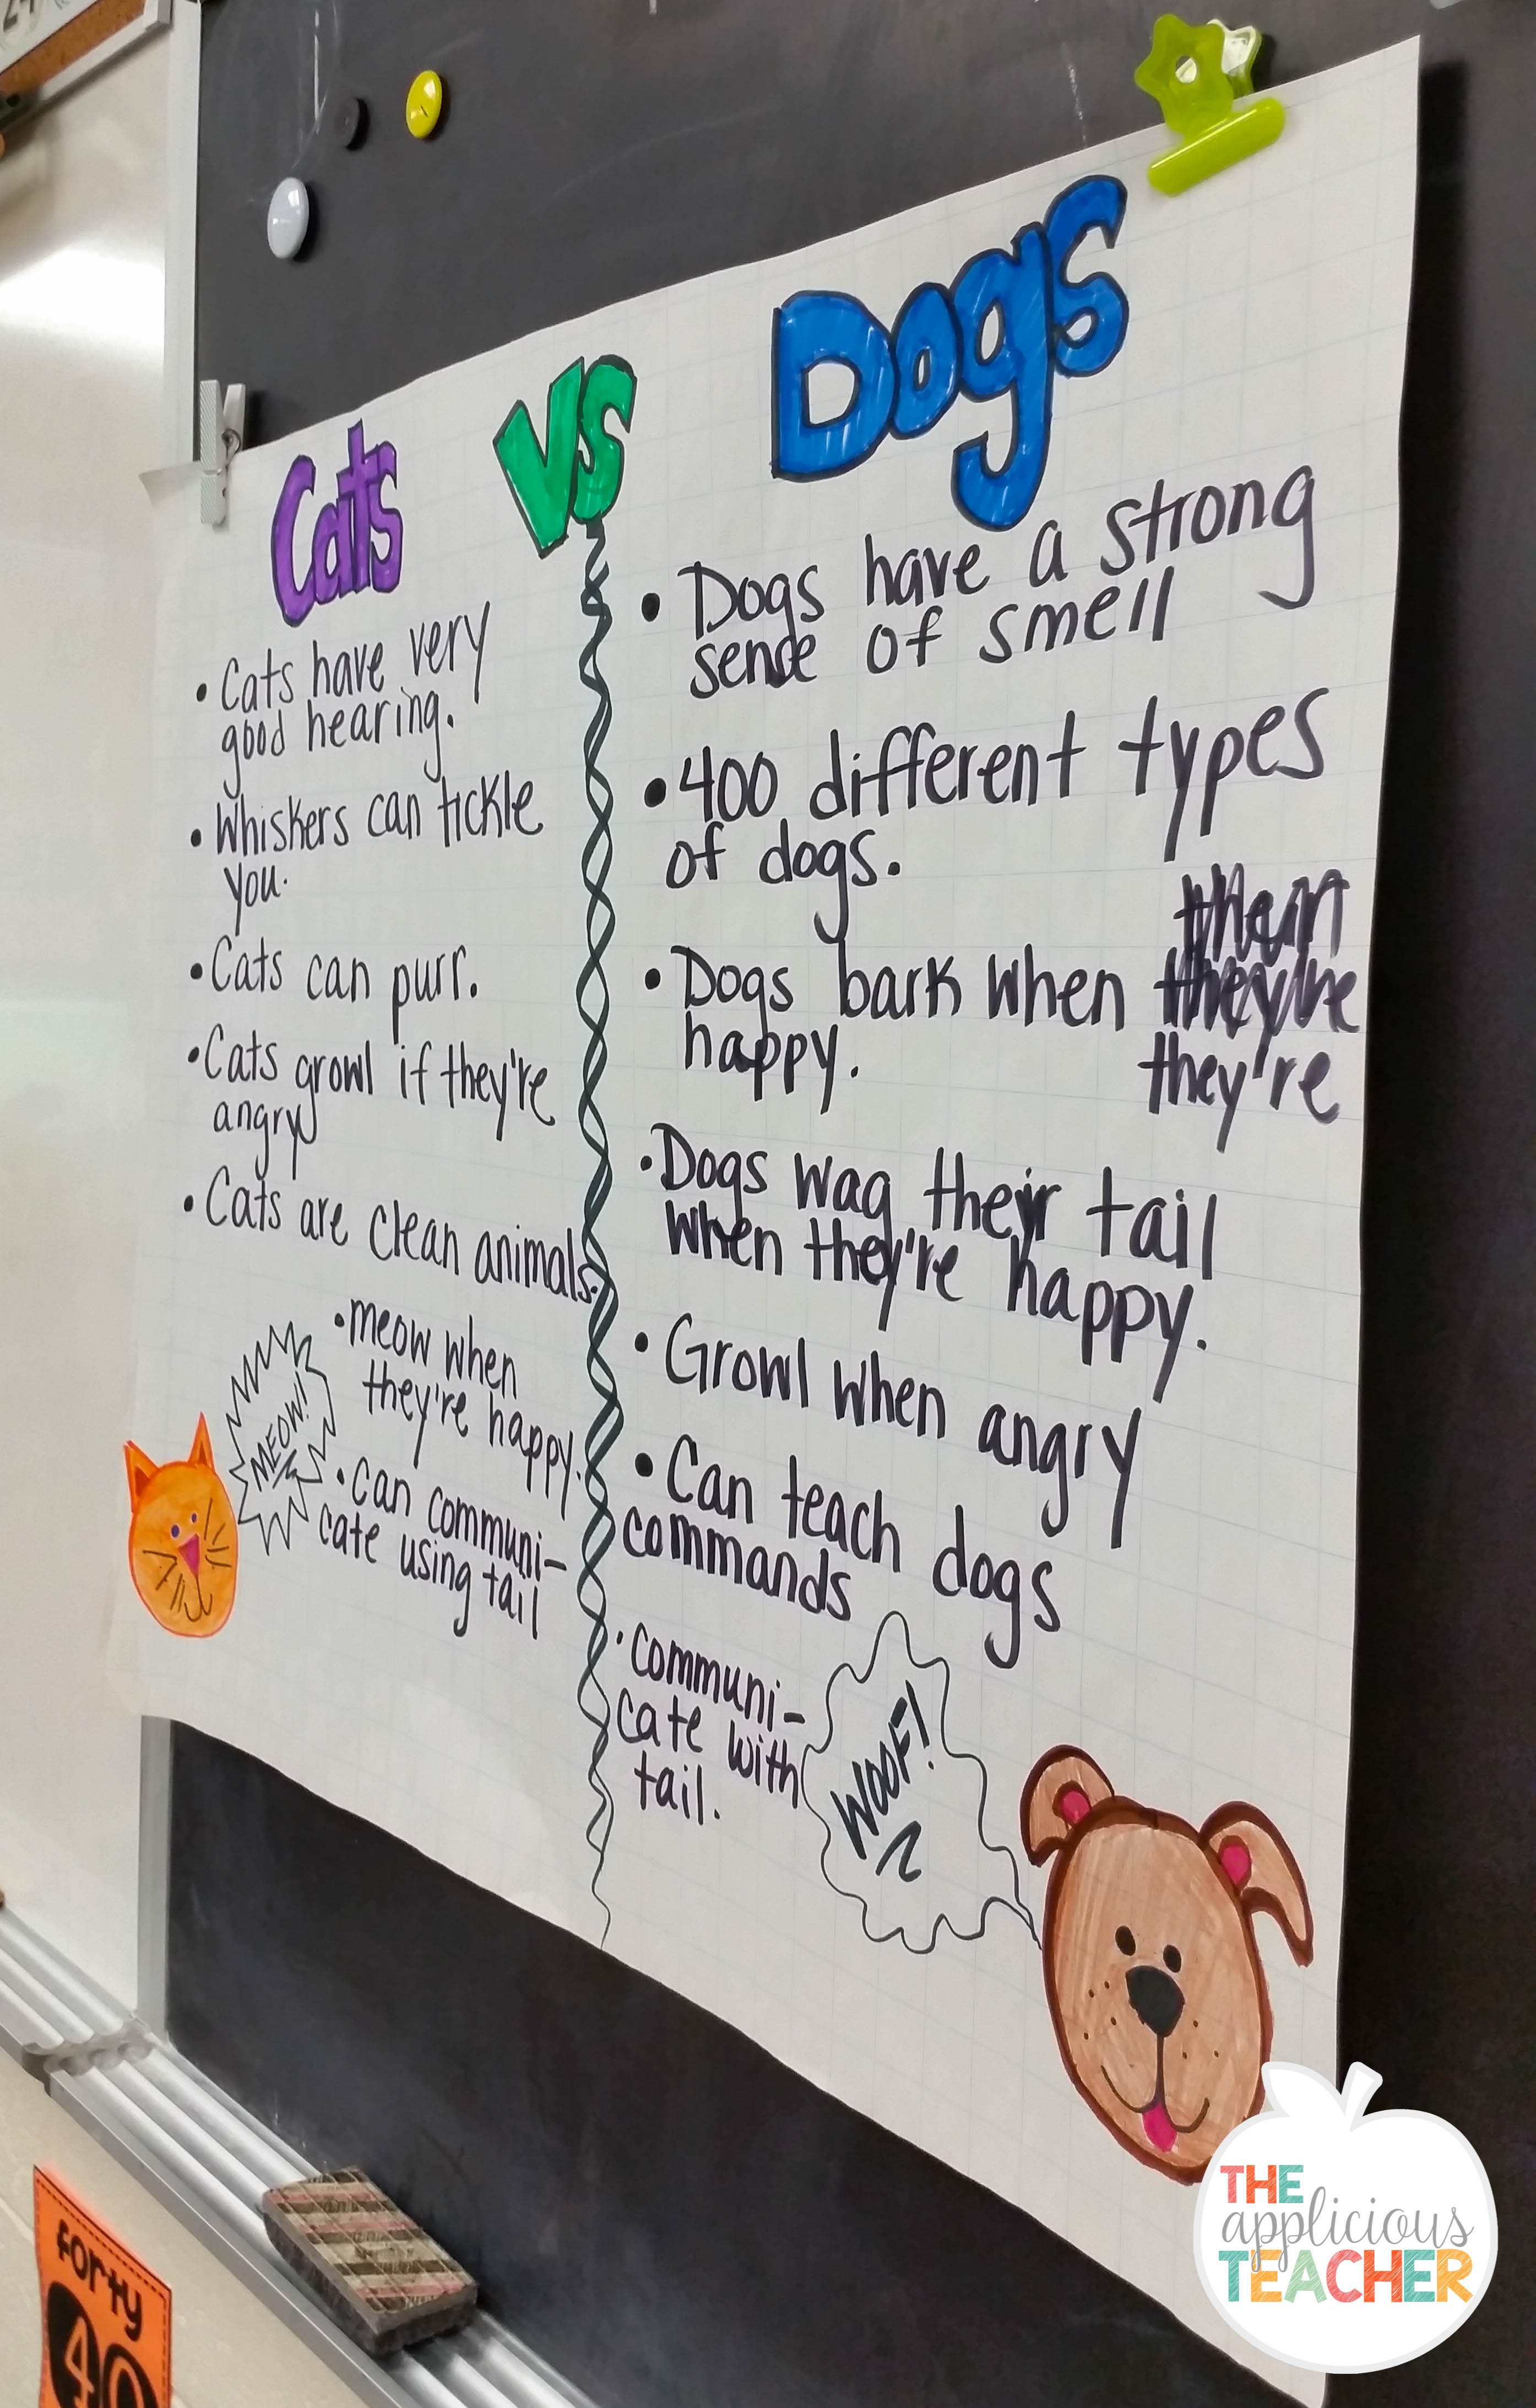 Cats vs Dogs
• Cats have very
good hearing.
• Whiskers can tickle
you.
• Cats can purr.
• Cats growl if they're
angry
• Cats are clean animals.
• meow when
they're happy.
• can communi-
cate using tail
MEOW!
• Dogs have a strong
sense of smell
• 400 different types
of dogs.
• Dogs bark when
they're
happy.
• Dogs wag their tail
when they're happy.
• Growl when angry
• Can teach dogs
commands
• communi-
cate with
tail.
WOOF!
forty
40
THE
applicious
TEACHER